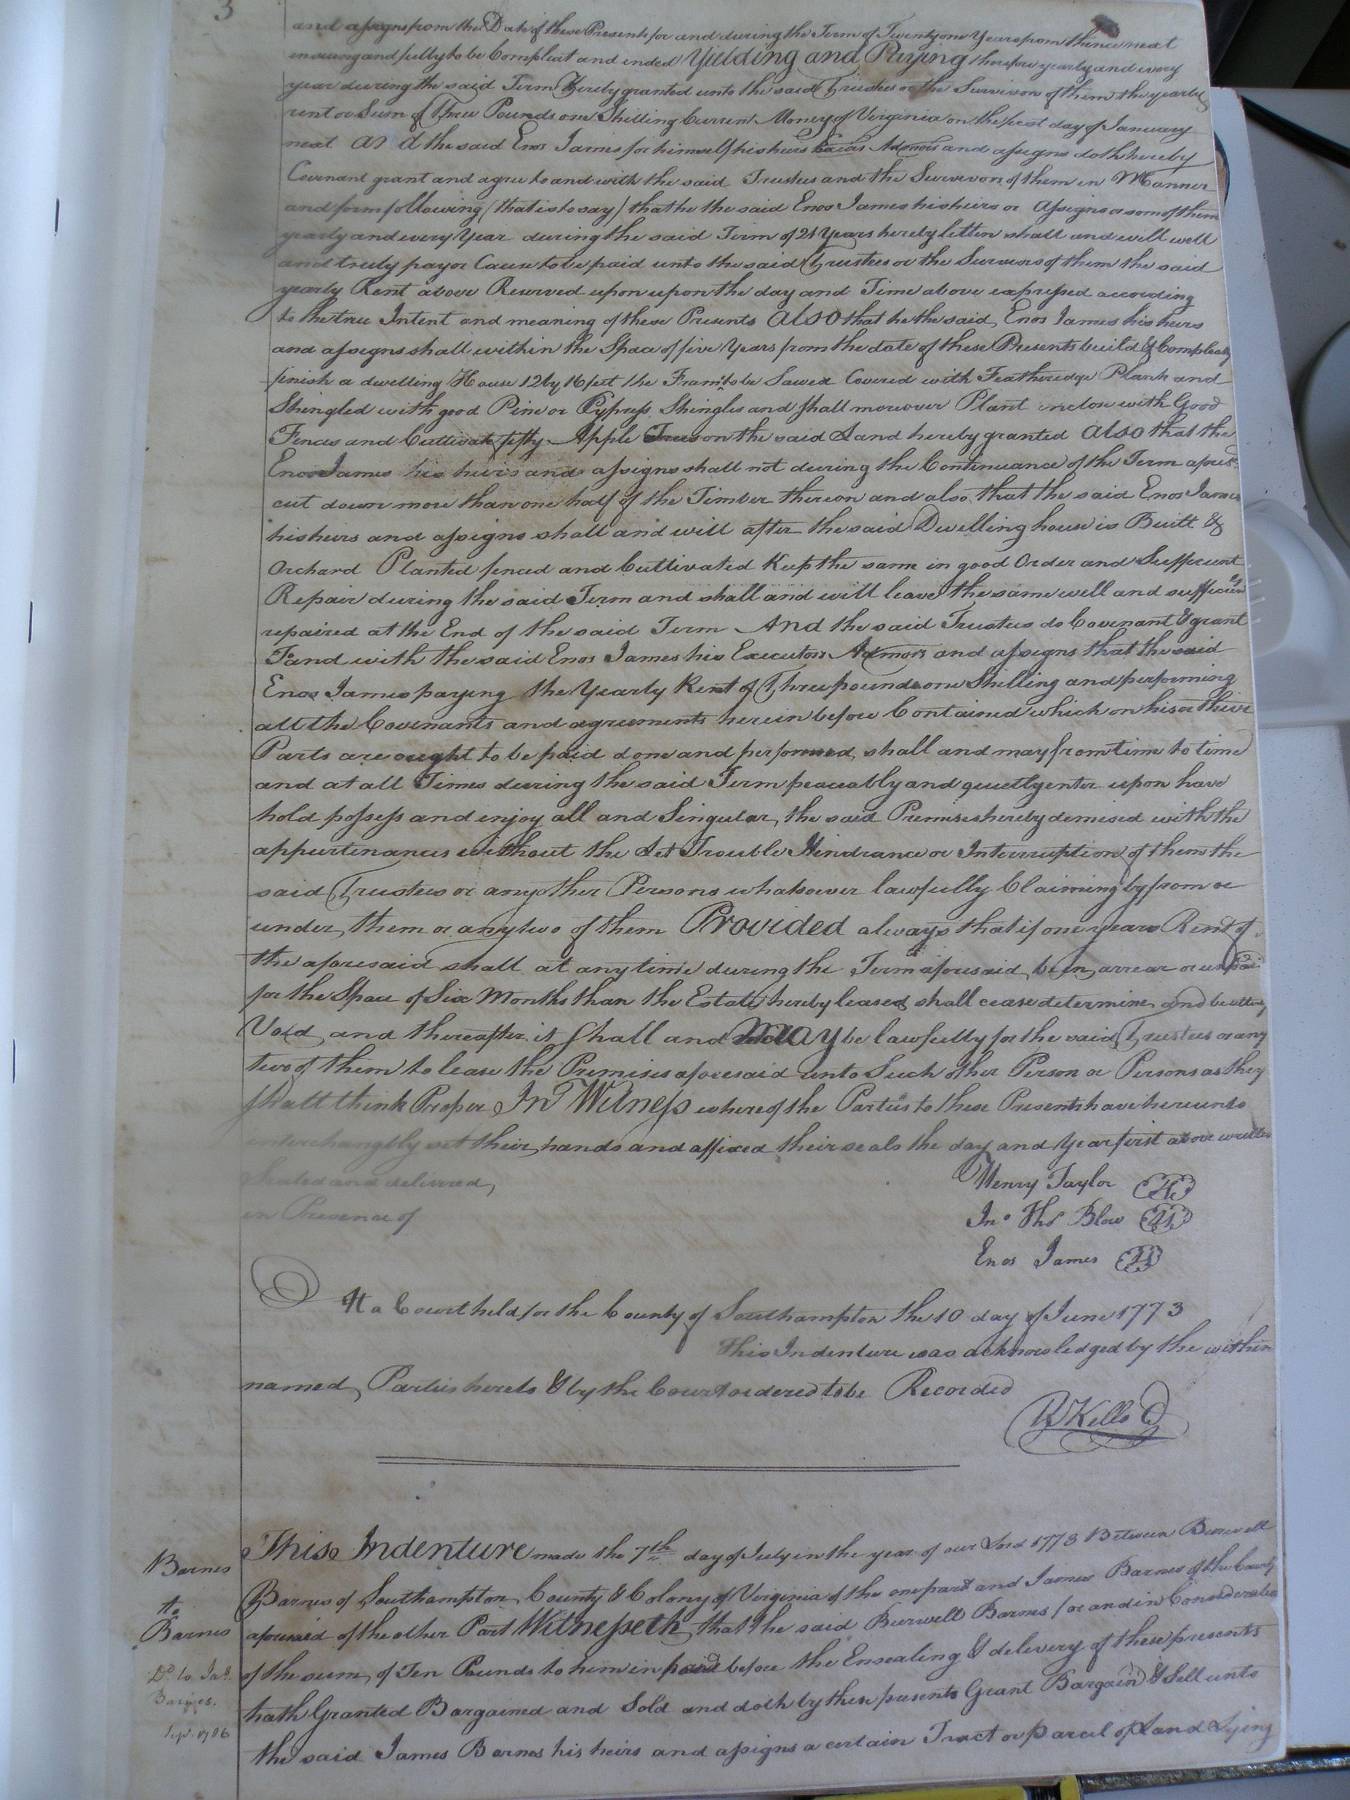 3
and assigns from the Date of these Presents for and during the Term of Twenty one Years from thence next
ensuing and fully to be Compleat and ended Yielding and Paying therefore yearly and every
year during the said Term hereby granted unto the said Trustees or the Survivors of them the yearly
rent or Sum of Three Pounds one Shilling Current Money of Virginia on the first day of January
next And the said Enos James for himself his heirs Admors and assigns doth hereby
Covenant grant and agree to and with the said Trustees and the Survivors of them in Manner
and form following (that is to say) that he the said Enos James his heirs or Assigns or som of them
yearly and every Year during the said Term of 21 Years hereby letten shall and will well
and truly pay or Cause to be paid unto the said Trustees or the Survivors of them the said
yearly Rent above Reserved upon upon the day and Time above expressed according
to the true Intent and meaning of these Presents also that he the said Enos James his heirs
and assigns shall within the Space of five Years from the date of these Presents build & Compleatly
finish a dwelling House 12 by 16 feet the Frame to be Sawed Covered with Featheredge Plank and
Shingled with good Pine or Cypress Shingles and shall moreover Plant inclose with Good
Fences and Cultivate fifty Apple Trees on the said Land hereby granted also that the
Enos James his heirs and assigns shall not during the Continuance of the Term afores.d
cut down more than one half of the Timber thereon and also that the said Enos James
his heirs and assigns shall and will after the said Dwelling house is Built &
Orchard Planted fenced and Cultivated Keep the same in good Order and Sufficient
Repair during the said Term and shall and will leave the same well and sufficiently
repaired at the End of the said Term And the said Trustees do Covenant & grant
To and with the said Enos James his Executors Admors and assigns that the said
Enos James paying the Yearly Rent of Three pounds one Shilling and performing
all the Covenants and agreements herein before Contained which on his or their
Parts are ought to be paid done and performed shall and may from time to time
and at all Times during the said Term peaceably and quietly enter upon have
hold possess and enjoy all and Singular the said Premises hereby demised with the
appurtenances without the Let Trouble Hindrance or Interruption of them the
said Trustees or any other Persons whatsoever lawfully Claiming by from or
under them or any two of them Provided always that if one years Rent of
the aforesaid shall at any time during the Term aforesaid be in arrear or unpaid
for the Space of Six Months than the Estate hereby leased shall cease determine and be utterly
Void and thereafter it shall and may be lawfully for the said Trustees or any
two of them to lease the Premises aforesaid unto Such other Person or Persons as they
shall think Proper In Witness whereof the Parties to these Presents have hereunto
interchangeably set their hands and affixed their seals the day and Year first above written
Sealed and delivered
in Presence of
Henry Taylor
Jno. Thos. Blow
Enos James
At a Court held for the County of Southampton the 10 day of June 1773
This Indenture was acknowledged by the within
named Parties hereto & by the Court ordered to be Recorded
R Kello C
Barnes
to
Barnes
Dd. to Jas.
Barnes.
Sep. 1786
This Indenture made the 7th day of July in the year of our Lord 1773 Between Burwell
Barnes of Southampton County & Colony of Virginia of the one part and James Barnes of the County
aforesaid of the other Part Witnesseth that the said Burwell Barnes for and in Consideration
of the sum of Ten Pounds to him in paid before the Ensealing & delivery of these presents
hath Granted Bargained and Sold and doth by these presents Grant Bargain & Sell unto
the said James Barnes his heirs and assigns a certain Tract or parcel of Land Lying